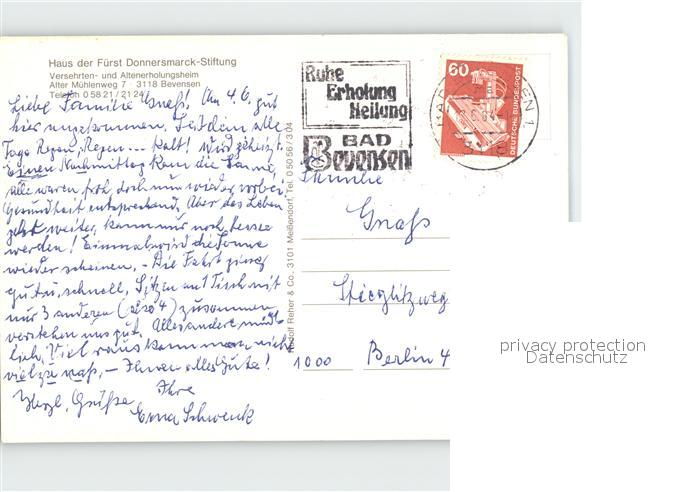 Haus der Fürst Donnersmarck-Stiftung
Versehrten- und Altenerholungsheim
Alter Mühlenweg 7 3118 Bevensen
Telefon 0 58 21 / 21 24
Liebe Familie Gnaß! Am 4.6. gut
hier angekommen. Seitdem alle
Tage Regen, Regen... kalt! Wird geheizt.
Einen Nachmittag kam die Sonne,
alle waren froh, doch nun wieder vorbei.
Gesundheit entsprechend. Aber das Leben
geht weiter, kann nur noch besser
werden! Einmal wird die Sonne
wieder scheinen. – Die Fahrt ging
gut u. schnell, Sitzen an 1 Tisch mit
nur 3 anderen (also 4) zusammen,
verstehen uns gut. Alles andere
Viel raus kann man nicht
viel zu naß, – Ihnen alles Gute!
Herzl. Grüße Ihre
Erna Schwenk
Rudolf Reher & Co., 3101 Meißendorf, Tel. 0 50 56 / 3 04
Ruhe
Erholung
Heilung
BAD
Bevensen
60
DEUTSCHE BUNDESPOST
Familie
Gnaß
Stieglitzweg
1000 Berlin 4
privacy protection
Datenschutz